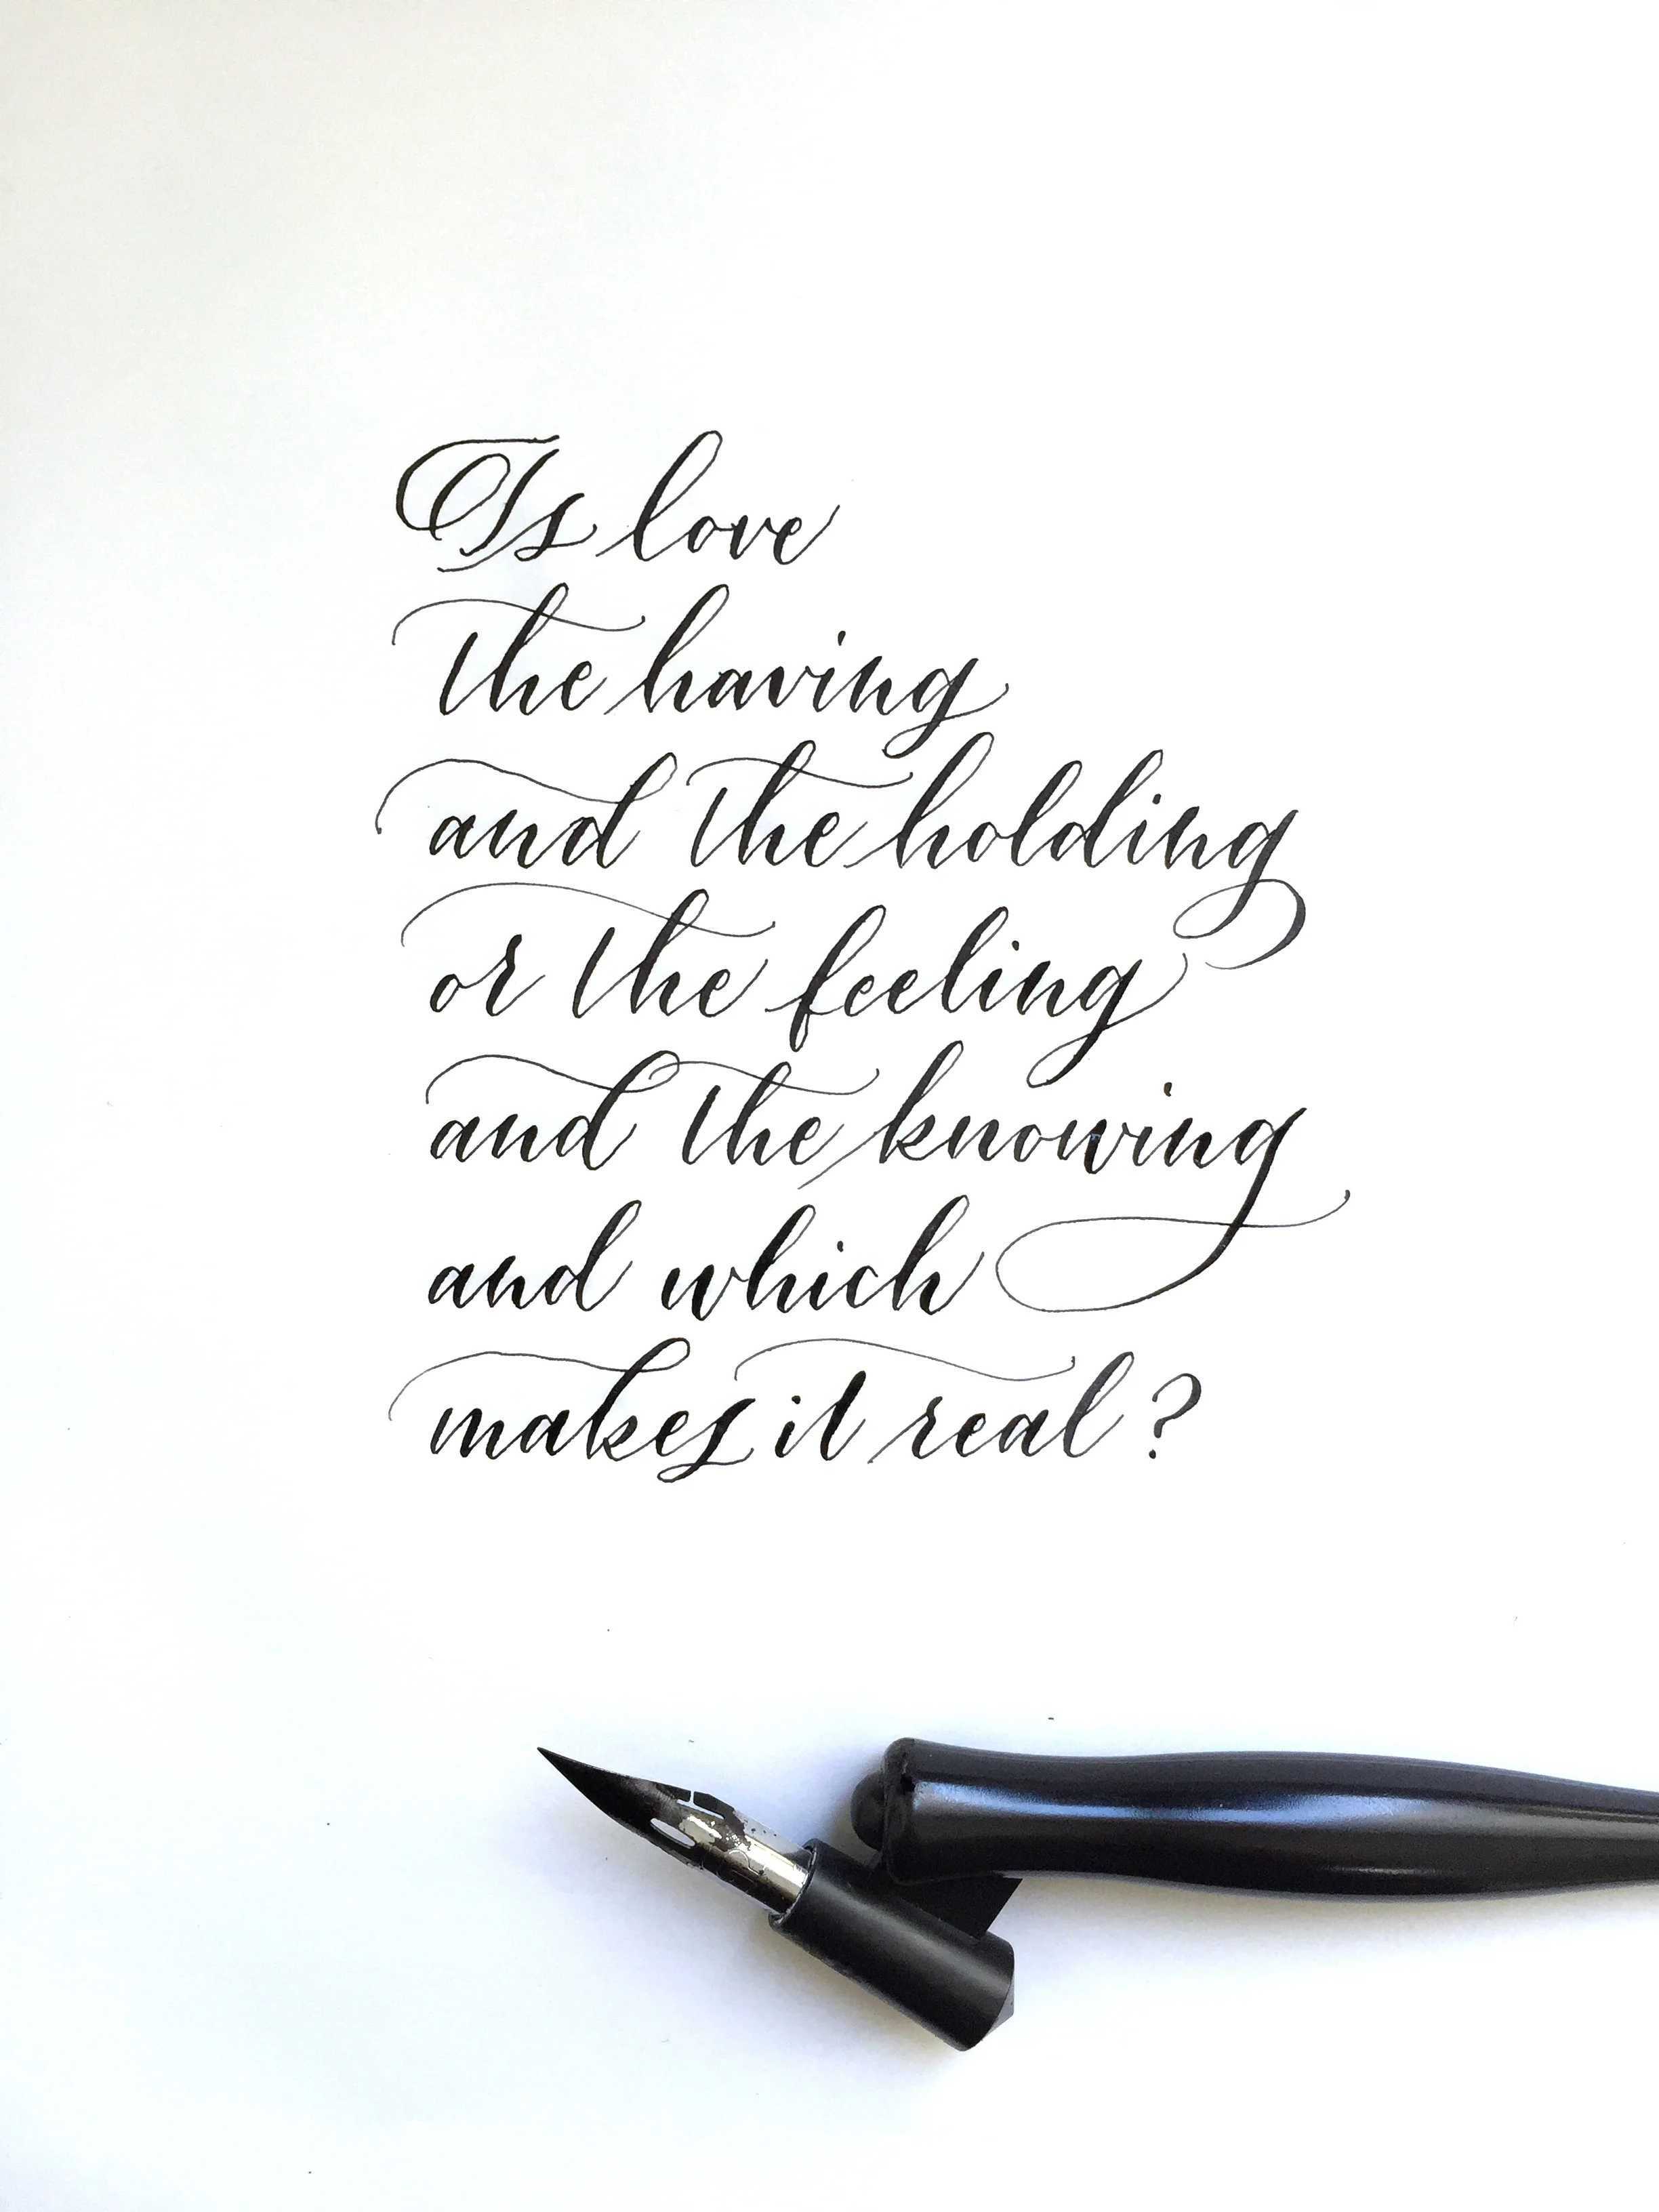 Is love
the having
and the holding
or the feeling
and the knowing
and which
makes it real?